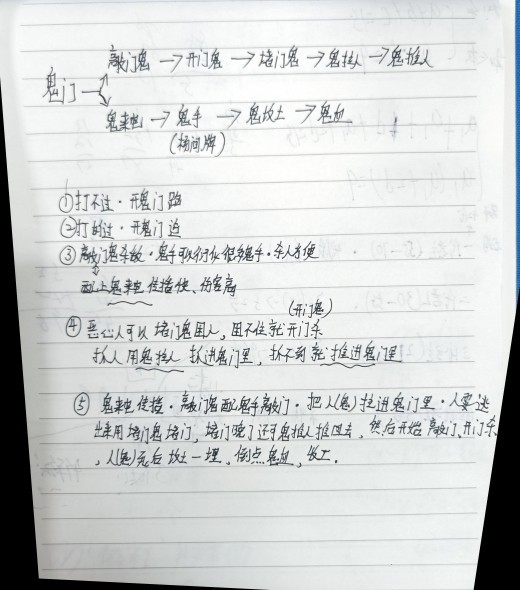 敲门鬼→开门鬼→堵门鬼→鬼拦人→鬼推人
鬼门
鬼来电→鬼手→鬼坟土→鬼血
①打不过·开鬼门跑
②打的过·开鬼门追
③敲门鬼杀敌·鬼手可以衍化很多鬼手·杀人方便
配上鬼来电使招使、伤害高
(开门鬼)
④恶心人可以堵门鬼困人,困不住就开门杀
抓人用鬼拦人抓进鬼门里,抓不到就推进鬼门里
⑤鬼来电使招·敲门鬼配鬼手敲门·把人(鬼)拉进鬼门里·人要逃
出来用堵门鬼堵门,堵门晚了还有鬼推人推回去,然后开始敲门、开门杀
,人(鬼)死后坟土一埋,倒点鬼血,收工.